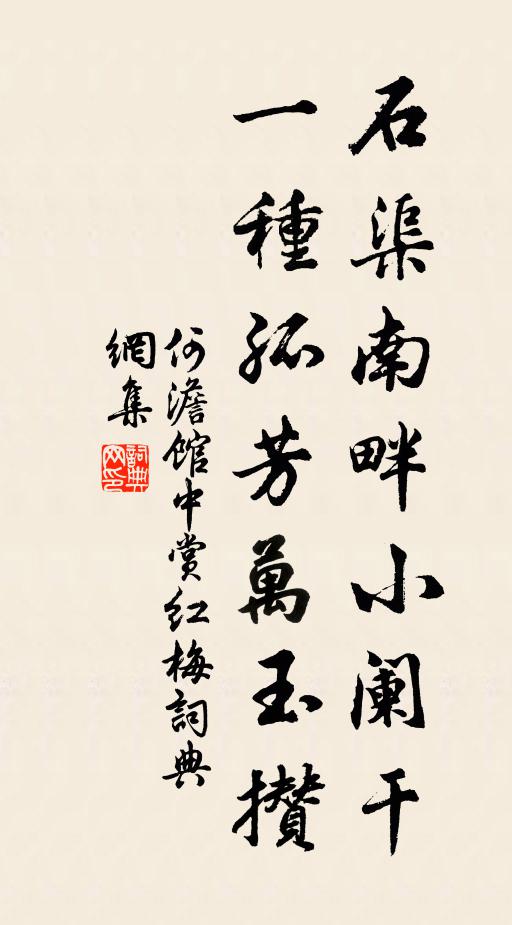 石渠南畔小阑干
一種孤芳萬玉攢
何澹館中賞红梅詞典
網集
詞典
网印